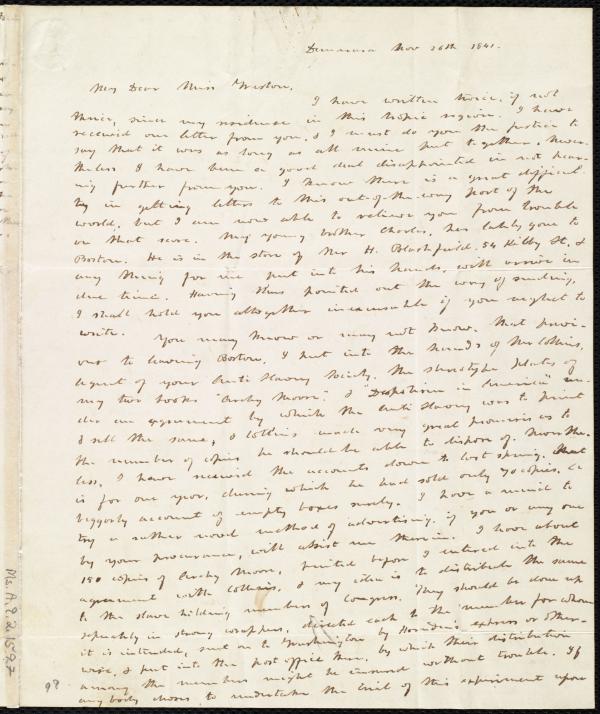 Demarara Nov 26th 1841.
My Dear Miss Weston,
I have written twice, if not
thrice, since my residence in this tropic region. I have
received one letter from you, & I must do you the justice to
say that it was as long as all mine put together. Never
theless I have been a good deal disappointed in not hear-
ing further from you. I know there is a great difficul
ty in getting letters to this out-of-the-way part of the
world, but I am now able to relieve you from trouble
on that score. My young brother Charles, has lately gone to
Boston. He is in the store of Mr H. Blanchfield. 54 Kilby St. &
any thing for me put into his hands, will arrive in
due time. Having thus pointed out the way of sending,
I shall hold you altogether inexcusable if you neglect to
write. You may know or may not know, that previ-
ous to leaving Boston, I put into the hands of Mr Collins,
agent of your Anti Slavery Society, the stereotype plates of
my two books "Archy Moore" & "Despotism in America" un-
der an agreement by which the Anti Slavery was to print
& sell the same, & Collins made very great promises as to
the number of copies he should be able to dispose of. Neverthe-
less, I have received the accounts down to last spring. That
is for one year, during which he had sold only 70 copies, a
beggarly account of empty boxes surely. I have a mind to
try a rather novel method of advertising. if you or any one
by your procurance, will assist me therein. I have about
180 copies of Archy Moore, printed before I entered into the
agreement with Collins, & my idea is to distribute the same
to the slave holding members of Congress. They should be done up
separately in strong wrappers, directed each to the member for whom
it is intended, sent on to Washington by Harnden's express or other-
wise, & put into the post office there, by which their distribution
among the members might be insured without trouble. If
any body chooses to undertake the trial of this experiment upon
Ms. A. 9. 2. 15. 97
98